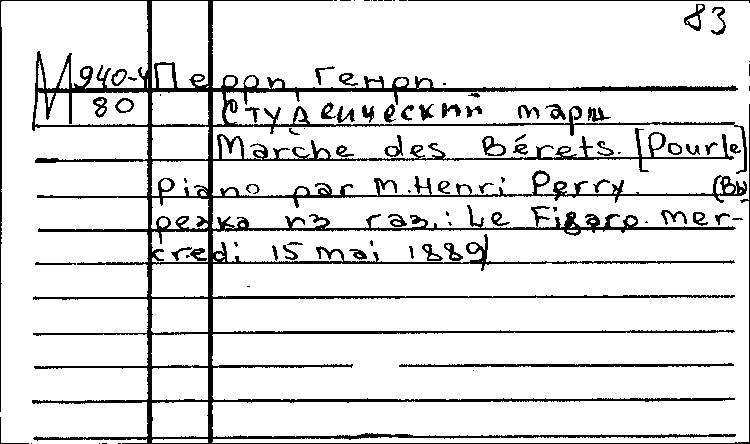 83
М 940-4 Перри, Генри.
80 Студенческий марш
Marche des Bérets. [Pour le]
Piano par M. Henri Perry. (Вы
резка из газ.: Le Figaro. mer-
credi 15 mai 1889)